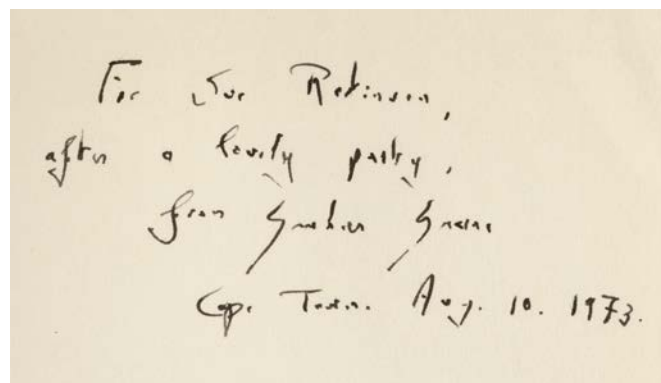 For Sue Robinson,
after a lovely party,
from Graham Greene
Cape Town. Aug. 10. 1973.